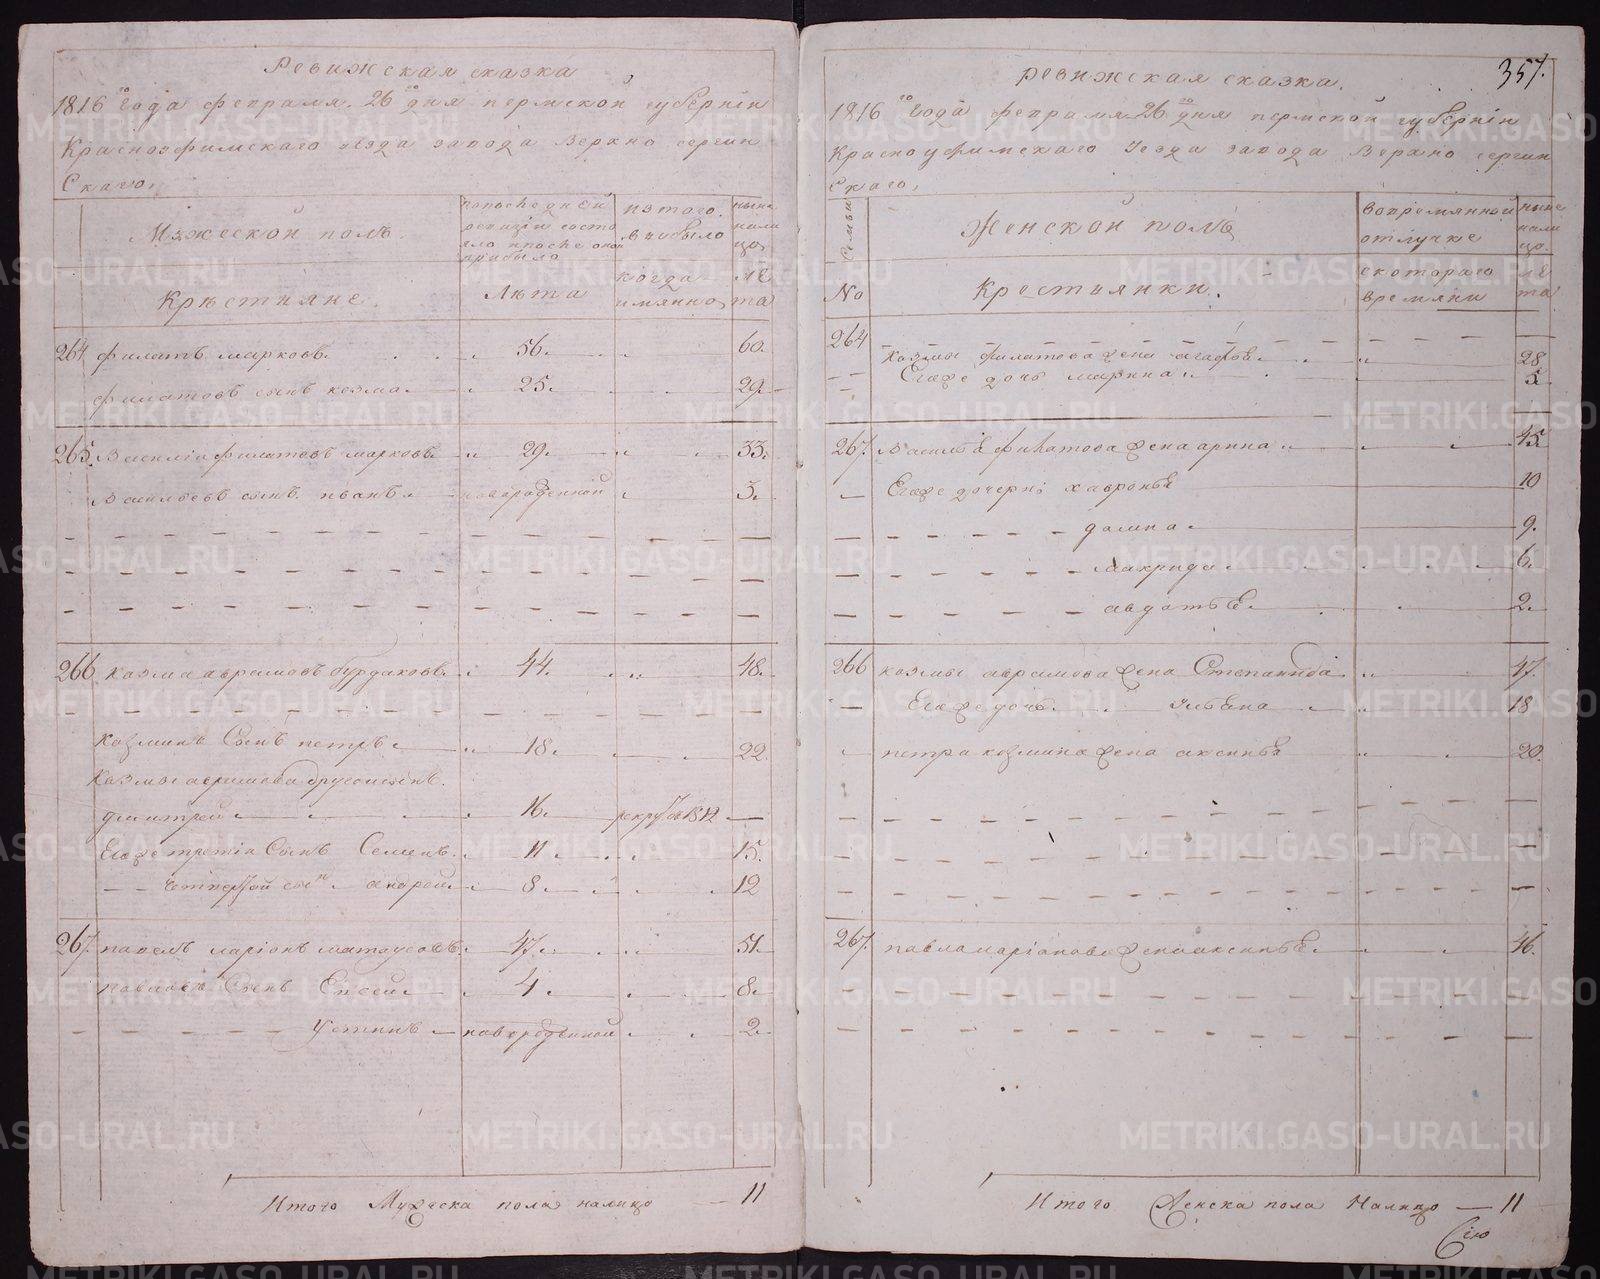 Ревижская сказка
1816го года февраля 26го дня пермской губернiи
Красноуфимскаго уезда завода Верхно сергин
Скаго,
Мужеской полъ.
попоследней
ревизiи состо
яло ипосле оной
прибыло
изтого
выбыло
ныне
нали
цо
Крѣстьяне.
Лѣта
когда
имянно
ле
та
264 филатъ марковъ. 56. 60.
филатовъ сынъ козма 25. 29.
265. Василiи филатовъ марковъ 29. 33.
васильевъ сынъ иванъ новорожденной 3.
266 козма аврамовъ бурдаковъ. 44. 48.
козминъ Сынъ петръ 18. 22.
козмы аврамова другой сынъ
дмитрей 16. рекрутъ 1812
Егоже третiи Сынъ Семенъ. 11 15.
четвертой сынъ андрей 8 12
267. павелъ ларiонъ матоусовъ. 47. 51.
павловъ Сынъ Елсей 4. 8.
Устинъ новорожденной 2.
Итого Мужеска пола налицо 11
357.
ревижская сказка.
1816го года февраля 26го дня пермской губернiи
Красноуфимскаго Уезда завода Верхно сергин
Скаго,
Семьи
Женской полъ
вопремянной
отлучке
ныне
нали
цо.
No
Крестьянки.
скотораго
времяни
ле
та
264
Козмы филатова жена агафья. 28
Егоже дочь марина 5
267. Василья филатова жена арина 45
Егоже дочери хавронья 10
домна 9.
макрида 6.
авдотья. 2.
266 козмы аврамова жена Степанида 47.
Егоже дочь ульяна 18
петра козмина жена аксинья 20.
267. павла ларiонова жена аксинья. 46.
Итого Женска пола Налицо 11
Сiю
METRIKI.GASO-URAL.RU